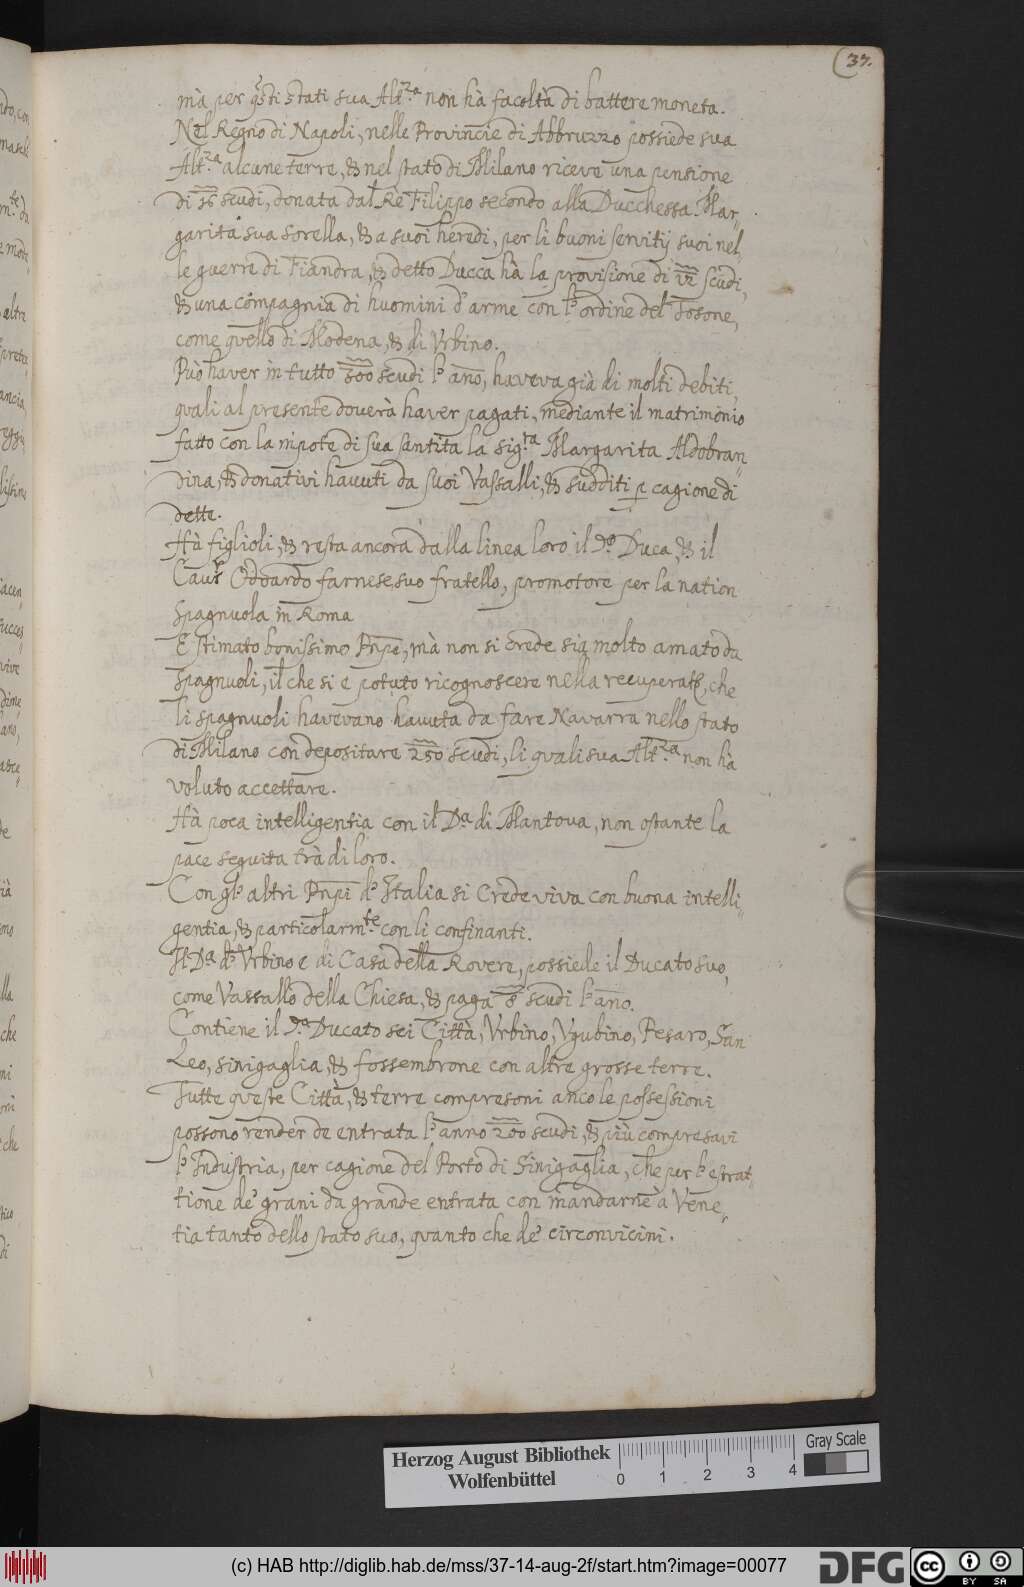 37.
mà per q̃sti stati sua Alt.za non hà facoltà di battere moneta.
Nel Regno di Napoli, nelle Provincie di Abbruzzo possiede sua
Alt.za alcune terre, & nel stato di Milano riceve una pensione
di scudi, donata dal Rè Filippo secondo alla Ducchessa Mar„
garita sua sorella, & a suoi heredi, per li buoni servitij suoi nel„
le guerre di Fiandra, & detto Ducca hà la provisione di scudi,
& una compagnia di huomini d'arme con l'ordine del Tosone,
come quello di Modena, & di Vrbino.
Può haver in tutto 300 scudi l' año, haveva già di molti debiti,
quali al presente doverà haver pagati, mediante il matrimonio
fatto con la nipote di sua santità la sig.ra Margarita Aldobran„
dina, & donativi havuti da suoi Vassalli, & sudditi ꝑ cagione di
dette.
Hà figlioli, & resta ancora dalla linea loro il d.o Duca, & il
Odoardo farnese suo fratello, promotore per la nation
spagnuola in Roma
E stimato bonissimo Pñpe, mà non si crede sia molto amato da
spagnuoli, il che si e potuto ricognoscere nella che
li spagnuoli havevano havuta da fare Navarra nello stato
di Milano con depositare 250 scudi, li quali sua Alt.za non hà
voluto accettare.
Hà poca intelligentia con il D.a di Mantova, non ostante la
pace seguita trà di loro.
Con gl' altri Pñpi d' Italia si Crede viva con buona intelli„
gentia, & particolarm.te con li confinanti.
Il D.a d' Vrbino e di Casa della Rovere, possiede il Ducato suo,
come Vassallo della Chiesa, & paga 8 scudi l' año.
Contiene il d.o Ducato sei Città, Vrbino, Vgubino, Pesaro, San
Leo, Sinigaglia, & fossembrone con altre grosse terre.
Tutte queste Città, & terre compresoni anco le possessioni
possono render de entrata l' anno 200 scudi, & più compresavi
l' Industria, per cagione del Porto di Sinigaglia, che per l' estrat„
tione de' grani da grande entrata con mandarne à Vene„
tia tanto dello stato suo, quanto che de' circonvicini.
Herzog August Bibliothek
Wolfenbüttel
0 1 2 3 4
Gray Scale
(c) HAB http://diglib.hab.de/mss/37-14-aug-2f/start.htm?image=00077
DFG
cc BY SA